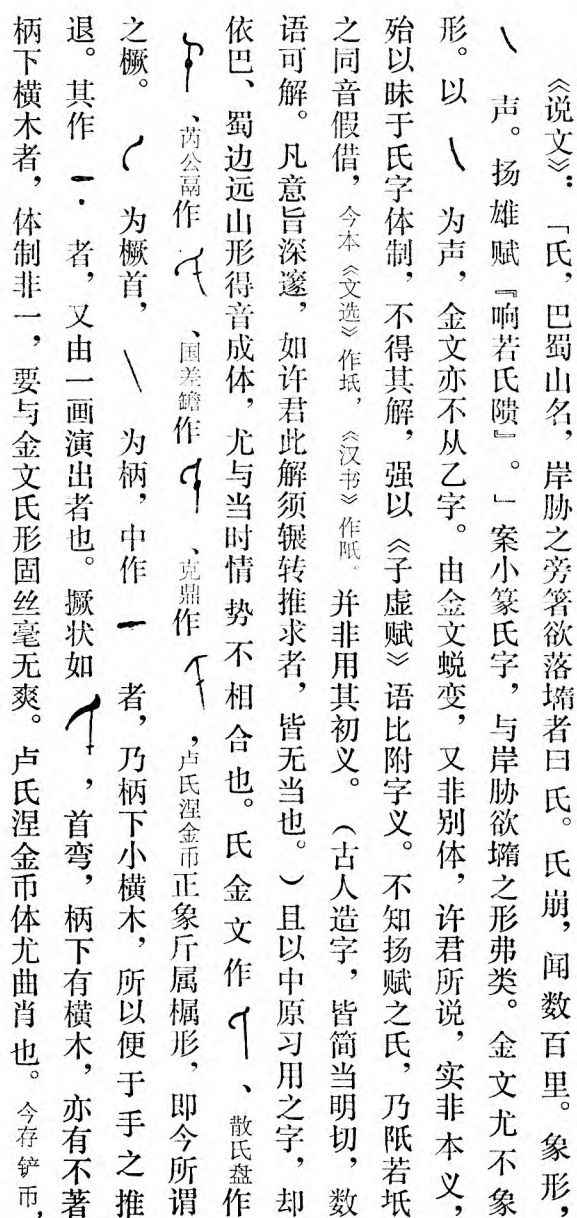 《说文》：「氏，巴蜀山名，岸胁之旁箸欲落墙者曰氏。氏崩，闻数百里。象形，
乀声。扬雄赋『响若氏隤』。」案小篆氏字，与岸胁欲墙之形弗类。金文尤不象
形。以乀为声，金文亦不从乙字。由金文蜕变，又非别体，许君所说，实非本义，
殆以昧于氏字体制，不得其解，强以《子虚赋》语比附字义。不知扬赋之氏，乃阺若坻
之同音假借，今本《文选》作坻，《汉书》作阺。并非用其初义。（古人造字，皆简当明切，数
语可解。凡意旨深邃，如许君此解须辗转推求者，皆无当也。）且以中原习用之字，却
依巴、蜀边远山形得音成体，尤与当时情势不相合也。氏金文作、散氏盘作
、芮公鬲作、国差𦉜作、克鼎作，卢氏涅金币正象斤属欘形，即今所谓
之橛。为橛首，为柄，中作者，乃柄下小横木，所以便于手之推
退。其作者，又由一画演出者也。撅状如，首弯，柄下有横木，亦有不著
柄下横木者，体制非一，要与金文氏形固丝毫无爽。卢氏涅金币体尤曲肖也。今存铲币，